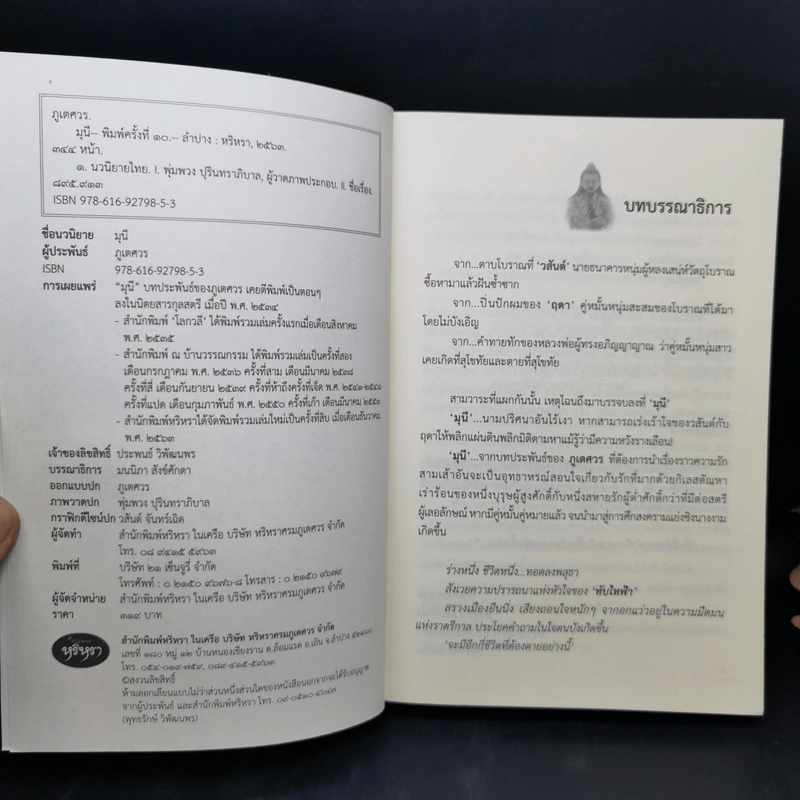 ภูเตศวร.
มุนี-- พิมพ์ครั้งที่ ๑๐.-- ลำปาง : หริหรา, ๒๕๖๓.
๓๔๔ หน้า.
๑. นวนิยายไทย. I. พุ่มพวง ปุรินทราภิบาล, ผู้วาดภาพประกอบ. II. ชื่อเรื่อง.
๘๙๕.๙๑๓
ISBN 978-616-92798-5-3
ชื่อนวนิยาย มุนี
ผู้ประพันธ์ ภูเตศวร
ISBN 978-616-92798-5-3
การเผยแพร่ "มุนี" บทประพันธ์ของภูเตศวร เคยตีพิมพ์เป็นตอนๆ
ลงในนิตยสารกุลสตรี เมื่อปี พ.ศ. ๒๕๓๔
- สำนักพิมพ์ 'โลกวลี' ได้พิมพ์รวมเล่มครั้งแรกเมื่อเดือนสิงหาคม
พ.ศ. ๒๕๓๕
- สำนักพิมพ์ ณ บ้านวรรณกรรม ได้พิมพ์รวมเล่มเป็นครั้งที่สอง
เดือนกรกฎาคม พ.ศ. ๒๕๓๖ ครั้งที่สาม เดือนมีนาคม ๒๕๓๘
ครั้งที่สี่ เดือนกันยายน ๒๕๓๙ ครั้งที่ห้าถึงครั้งที่เจ็ด พ.ศ. ๒๕๔๑-๒๕๔๘
ครั้งที่แปด เดือนกุมภาพันธ์ พ.ศ. ๒๕๕๐ ครั้งที่เก้า เดือนมีนาคม
- สำนักพิมพ์หริหราได้จัดพิมพ์รวมเล่มใหม่เป็นครั้งที่สิบ เมื่อเดือนธันวาคม
พ.ศ. ๒๕๖๓
เจ้าของลิขสิทธิ์ ประพนธ์ วิพัฒนพร
บรรณาธิการ มนนิภา สังข์ศักดา
ออกแบบปก ภูเตศวร
ภาพวาดปก พุ่มพวง ปุรินทราภิบาล
กราฟิกดีไซน์ปก วสันต์ จันทร์เฉิด
ผู้จัดทำ สำนักพิมพ์หริหรา ในเครือ บริษัท หริหราศรมภูเตศวร จำกัด
โทร. ๐๘ ๙๔๑๕ ๕๙๖๓
พิมพ์ที่ บริษัท ๒๑ เซ็นจูรี่ จำกัด
โทรศัพท์ : ๐ ๒๑๕๐ ๙๖๗๖-๘ โทรสาร : ๐ ๒๑๕๐ ๙๖๗๙
ผู้จัดจำหน่าย สำนักพิมพ์หริหรา ในเครือ บริษัท หริหราศรมภูเตศวร จำกัด
ราคา ๓๑๙ บาท
หริหรา
สำนักพิมพ์หริหรา ในเครือ บริษัท หริหราศรมภูเตศวร จำกัด
เลขที่ ๑๘๐ หมู่ ๑๒ บ้านหนองเชียงราน ต.ล้อมแรด อ.เถิน จ.ลำปาง ๕๒๑๖๐
โทร. ๐๕๔-๐๑๙-๗๕๙, ๐๘๙-๔๑๕-๕๙๖๓
©สงวนลิขสิทธิ์
ห้ามลอกเลียนแบบไม่ว่าส่วนหนึ่งส่วนใดของหนังสือนอกจากจะได้รับอนุญาต
จากผู้ประพันธ์ และสำนักพิมพ์หริหรา โทร. ๐๙-๐๕๑๐-๔๖๔๗
(พุทธรักษ์ วิพัฒนพร)
บทบรรณาธิการ
จาก...ดาบโบราณที่ 'วสันต์' นายธนาคารหนุ่มผู้หลงเสน่ห์วัตถุโบราณ
ซื้อหามาแล้วฝันซ้ำซาก
จาก...ปิ่นปักผมของ 'ฤดา' คู่หมั้นหนุ่มสะสมของโบราณที่ได้มา
โดยไม่บังเอิญ
จาก...คำทายทักของหลวงพ่อผู้ทรงอภิญญาญาณ ว่าคู่หมั้นหนุ่มสาว
เคยเกิดที่สุโขทัยและตายที่สุโขทัย
สามวาระที่แผกกันนั้น เหตุไฉนถึงมาบรรจบลงที่ 'มุนี'
'มุนี'...นามปริศนาอันไร้เงา หากสามารถเร่งเร้าใจของวสันต์กับ
ฤดาให้พลิกแผ่นดินพลิกมิติตามหาแม้รู้ว่ามีความหวังรางเลือน!
'มุนี'...จากบทประพันธ์ของ ภูเตศวร ที่ต้องการนำเรื่องราวความรัก
สามเส้าอันจะเป็นอุทธาหรณ์สอนใจเกี่ยวกับรักที่มากด้วยกิเลสตัณหา
เร่าร้อนของหนึ่งบุรุษผู้สูงศักดิ์กับหนึ่งสหายรักผู้ต่ำศักดิ์กว่าที่มีต่อสตรี
ผู้เลอลักษณ์ หากมีคู่หมั้นคู่หมายแล้ว จนนำมาสู่การศึกสงครามแย่งชิงนางงาม
เกิดขึ้น
ร่างหนึ่ง ชีวิตหนึ่ง...ทอดลงพสุธา
สังเวยความปรารถนาแห่งหัวใจของ 'ทับไทฟ้า'
สรวงเมืองยืนนิ่ง เสียงถอนใจหนักๆ จากอกแว่วอยู่ในความมืดมน
แห่งราตรีกาล ประโยคคำถามในใจตนบังเกิดขึ้น
'จะมีอีกกี่ชีวิตที่ต้องตายอย่างนี้'